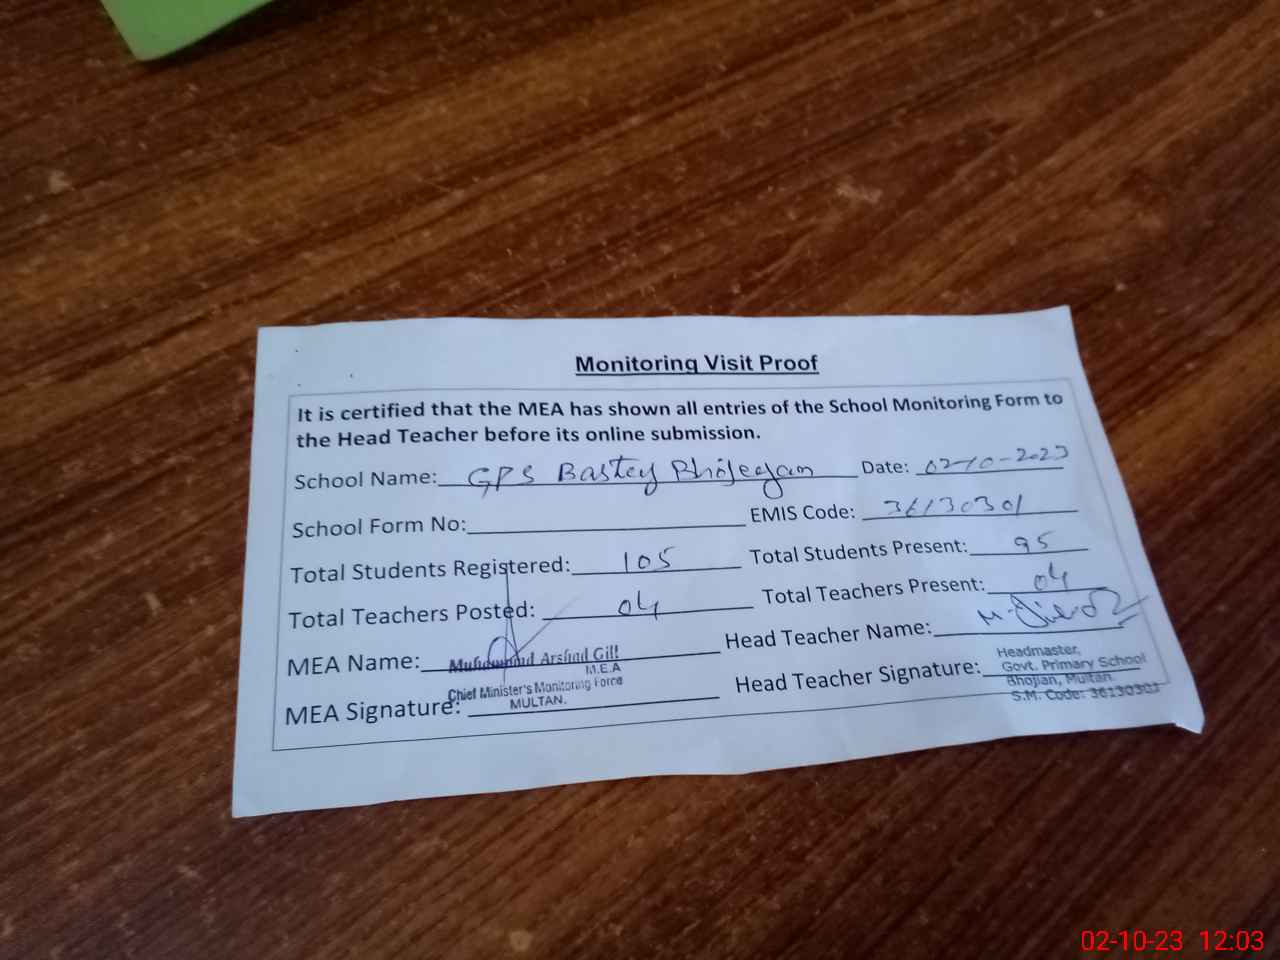 Monitoring Visit Proof
It is certified that the MEA has shown all entries of the School Monitoring Form to
the Head Teacher before its online submission.
School Name: GPS Bastey Bhojegan Date: 02-10-2023
School Form No: EMIS Code: 36130301
Total Students Registered: 105 Total Students Present: 95
Total Teachers Posted: 04 Total Teachers Present: 04
MEA Name: Muhammad Arshad Gill Head Teacher Name:
M.E.A
Chief Minister's Monitoring Force
MULTAN.
MEA Signature: Head Teacher Signature:
Headmaster,
Govt. Primary School
Bhojian, Multan.
S.M. Code: 36130301
02-10-23 12:03